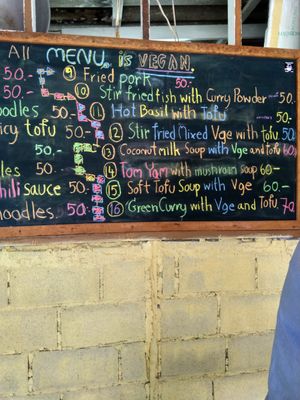 All MENU is VEGAN
50.- 9 Fried pork 50.-
50.- 10 Stir fried fish with Curry Powder 50.-
oodles 50.- 11 Hot Basil with Tofu 50.-
icy tofu 50.- 12 Stir Fried Mixed Vge with tofu 50.
50.- 13 Coconut milk Soup with Vge and tofu 60.
les 50.- 14 Tom Yam with mushroom soup 60-
hili sauce 50.- 15 Soft Tofu Soup with Vge 60.-
noodles. 50.- 16 Green Curry with Vge and Tofu 70